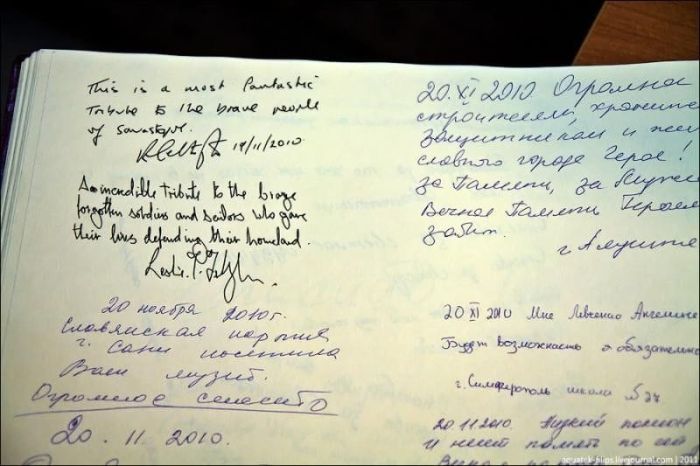 This is a most fantastic
Tribute to the brave people
of Sevastopol.
19/11/2010.
An incredible tribute to the brave
forgotten soldiers and sailors who gave
their lives defending their homeland.
Leslie
20 ноября 2010г.
Славянская
г. Саки посетила
Ваш музей.
Огромное спасибо
20. 11. 2010.
20. XI 2010 Огромна
строителям, хранит
защитникам и
славного города Героя!
за Память, за
Вечная Память Героям
г. Алушт
20 XI 2010 Мне Левченко Ангелине
Будет возможность обязательно
г. Симферополь школа №
20 11 2010.
и память по
livejournal.com | 2011